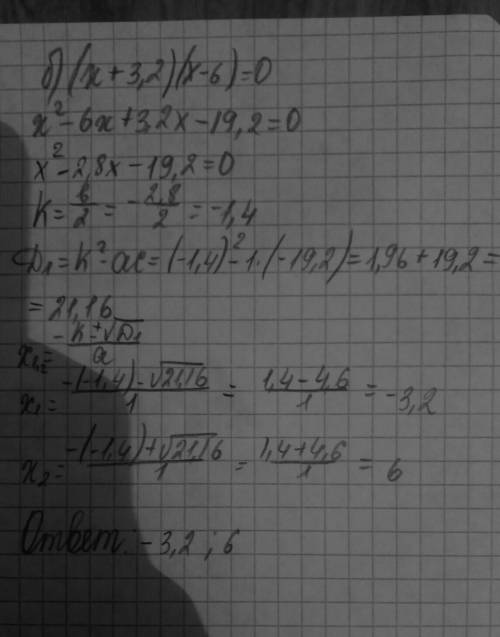 б) (x+3,2)(x-6)=0
x²-6x+3,2x-19,2=0
x²-2,8x-19,2=0
K=b/2=-2,8/2=-1,4
D₁=K²-ac=(-1,4)²-1·(-19,2)=1,96+19,2=
=21,16
x₁,₂=(-K±√D₁)/a
x₁=(-(-1,4)-√21,16)/1=(1,4-4,6)/1=-3,2
x₂=(-(-1,4)+√21,16)/1=(1,4+4,6)/1=6
Ответ: -3,2 ; 6